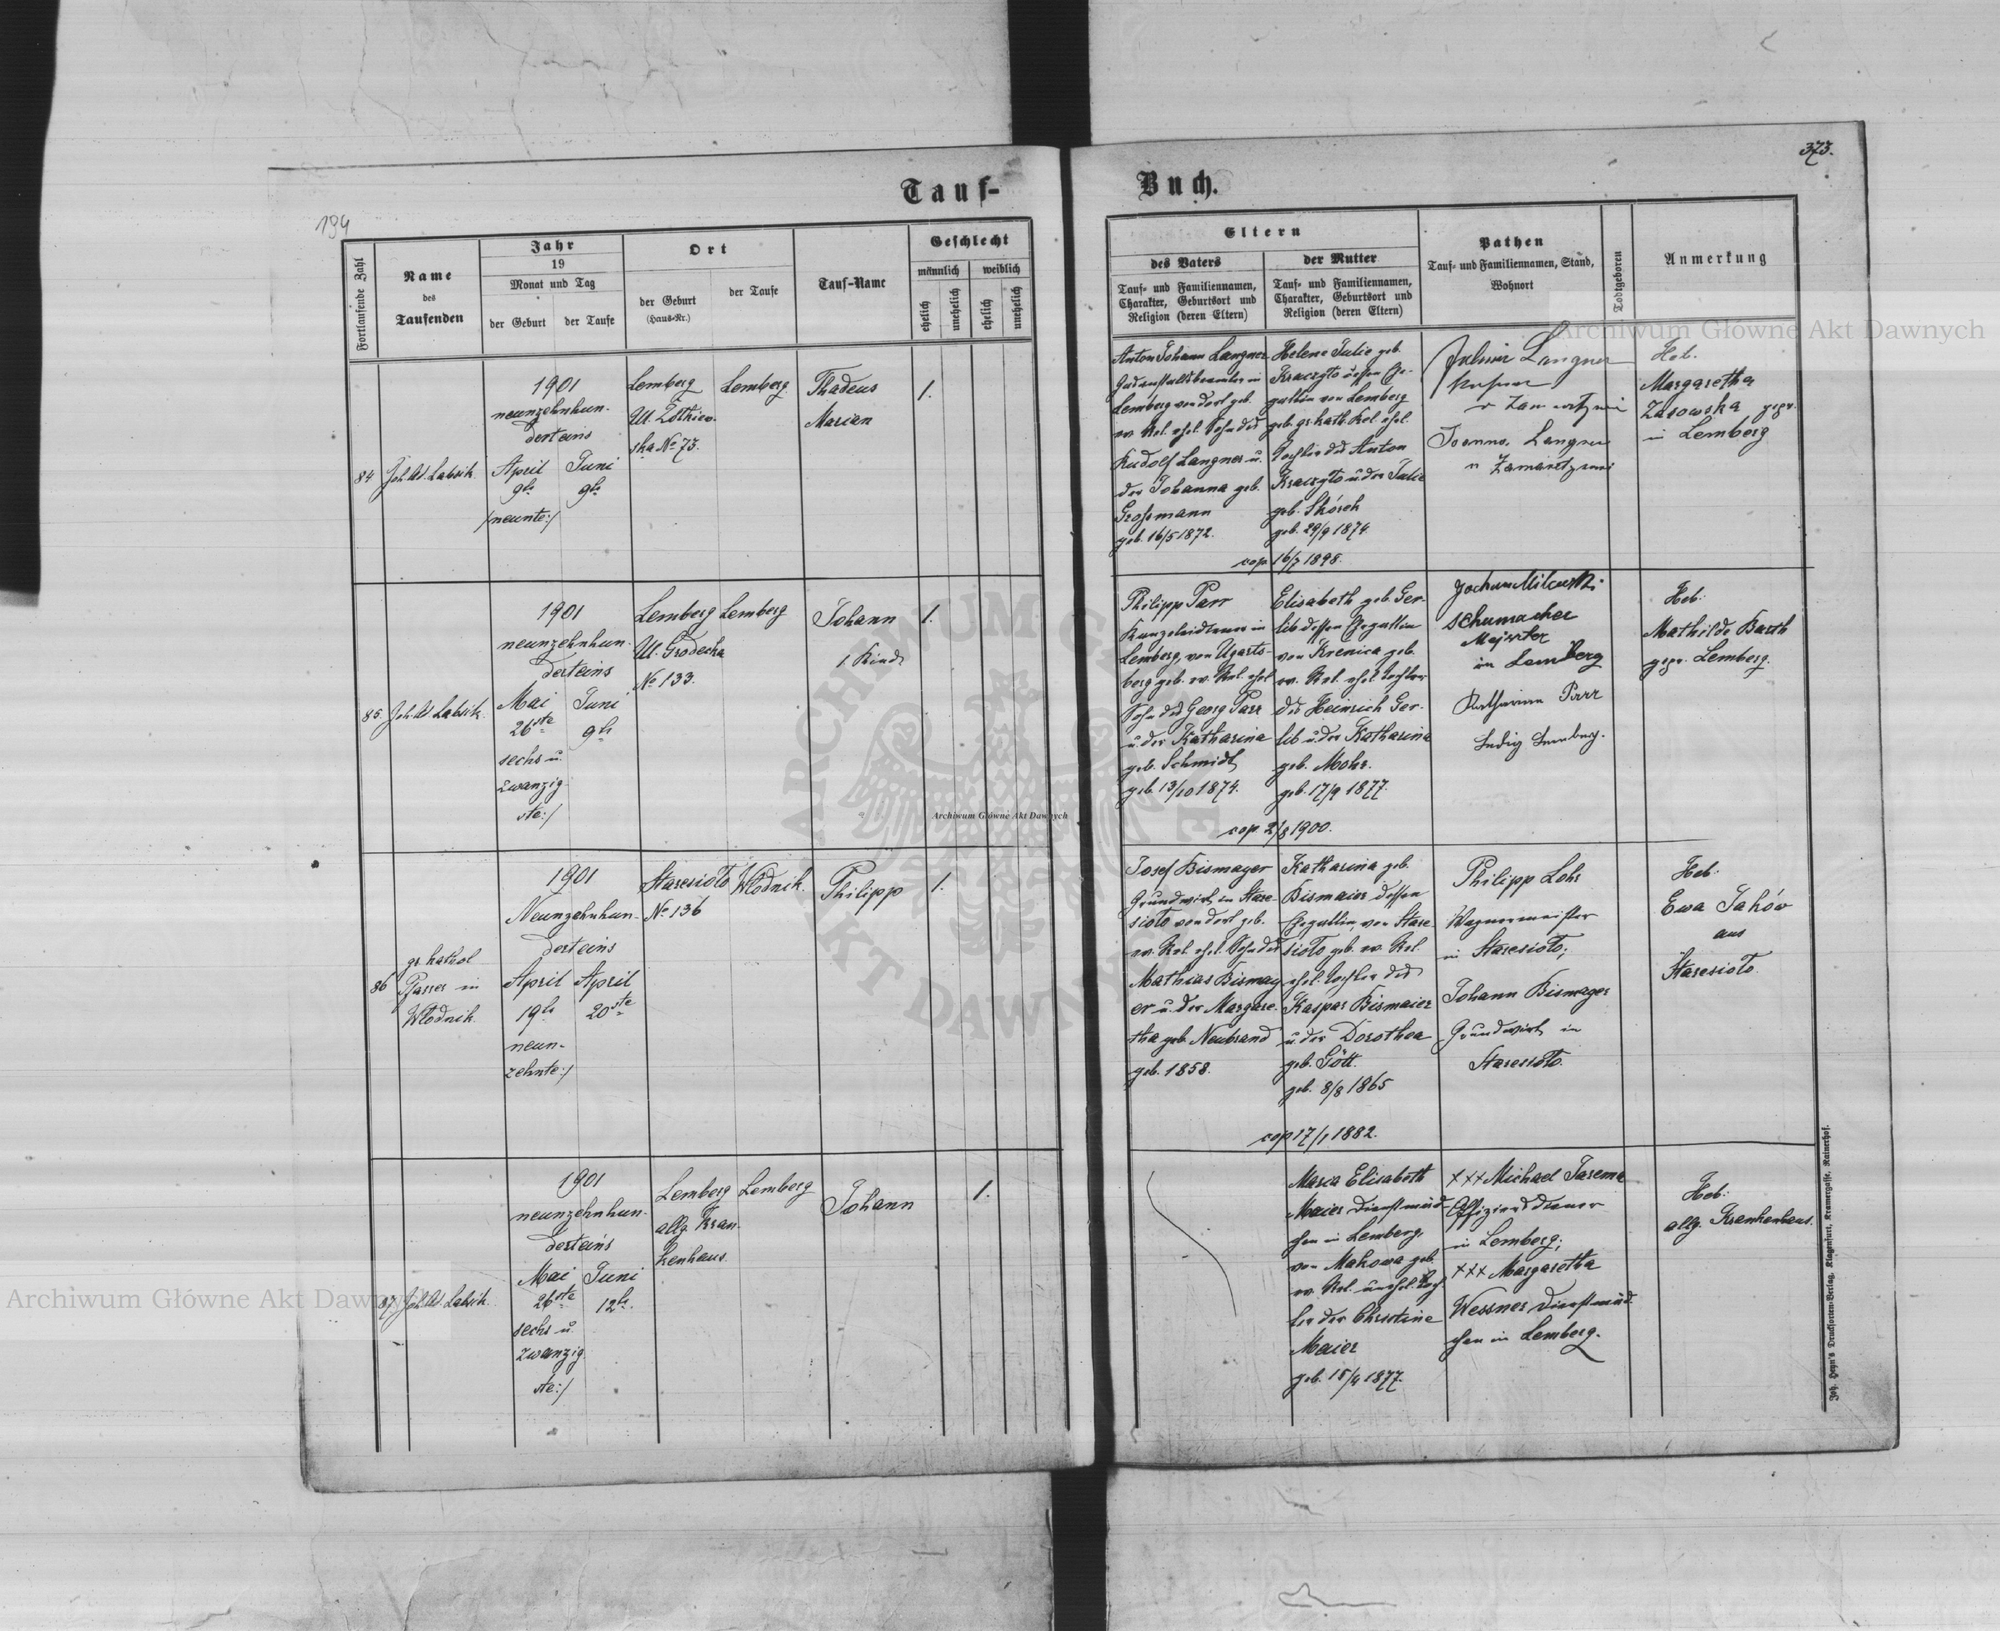 373.
Tauf-
Buch.
194
Fortlaufende Zahl
Name
des
Taufenden
Jahr
19
Monat und Tag
der Geburt
der Taufe
Ort
der Geburt
(Haus-Nr.)
der Taufe
Tauf-Name
Geschlecht
männlich
weiblich
ehelich
unehelich
ehelich
unehelich
Eltern
des Vaters
Tauf- und Familiennamen,
Charakter, Geburtsort und
Religion (deren Eltern)
der Mutter
Tauf- und Familiennamen,
Charakter, Geburtsort und
Religion (deren Eltern)
Pathen
Tauf- und Familiennamen, Stand,
Wohnort
Todtgeboren
Anmerkung
84
Joh. Ad. Labsik.
1901
neunzehnhun-
derteins
April
9te
/neunte:/
Juni
9te
Lemberg
Ul. Zólkiew-
ska No 73.
Lemberg
Thadeus
Marian
1.
Anton Johann Langner
Gasanstaltsbeamter in
Lemberg von dort geb.
ev. Rel. ehel. Sohn des
Rudolf Langner u.
der Johanna geb.
Großmann
geb. 16/5 1872.
Helene Julie geb.
Kraczyto dessen Ge-
gattin von Lemberg
geb. gr. kath. Rel. ehel.
Tochter des Anton
Kraczyto u. der Julie
geb. Skórch
geb. 29/9 1874.
cop 16/7 1898.
Langner
Joanna Langner
Heb.
Margaretha
Zasowska gepr.
in Lemberg
85.
Joh. Ad. Labsik.
1901
neunzehnhun-
derteins
Mai
26ste
sechs u.
zwanzig
ste:/
Juni
9te
Lemberg
Ul. Grodecka
No 133.
Lemberg
Johann
1. Kind
1.
Philipp Parr
Kanzleidiener in
Lemberg, von Ugarts-
berg geb. ev. Rel. ehel.
Sohn des Georg Parr
u. der Katharina
geb. Schmidt
geb. 13/10 1874.
Elisabeth geb. Ger-
lib dessen Ehegattin
von Krenica geb.
ev. Rel. ehel. Tochter
des Heinrich Ger-
lib u. der Katharina
geb. Mohr.
geb. 17/9 1877.
cop. 2/8 1900.
Schumacher
Mejster
in Lemberg
Katharina Parr
Ledig Lemberg.
Heb.
Mathilde Barth
gepr. Lemberg.
86
gr. kathol
Pfarrer in
Włodnik.
1901
Neunzehnhun-
derteins
April
19te
neun-
zehnte:/
April
20ste
Staresioło
No 136
Włodnik.
Philipp
1.
Josef Bismayer
Grundwirt in Stare-
sioło von dort geb.
ev. Rel. ehel. Sohn des
Mathias Bismay-
er u. der Margare-
tha geb. Neubrand
geb. 1858.
Katharina geb.
Bismaier dessen
Ehegattin, von Stare-
sioło geb. ev. Rel.
ehel. Tochter des
Kaspar Bismaier
u. der Dorothea
geb. Gött.
geb. 8/8 1865
cop 17/1 1882.
Philipp Lohr
Wagnermeister
in Staresioło;
Johann Bismayer
Grundwirt in
Staresioło.
Heb.
Ewa Jaków
aus
Staresioło
87
Joh. Ad. Labsik.
1901
neunzehnhun-
derteins
Mai
26ste
sechs u.
zwanzig
ste:/
Juni
12te.
Lemberg
allg. Kran-
kenhaus.
Lemberg
Johann
1.
Maria Elisabeth
Maier Dienstmäd-
chen in Lemberg,
von Makowa geb.
ev. Rel. unehel. Toch-
ter der Christine
Maier
geb. 15/4 1877.
+++ Michael Jarema
Offiziersdiener
in Lemberg;
+++ Margaretha
Wessner Dienstmäd-
chen in Lemberg.
Heb.
allg. Krankenhaus.
Joh. Heyn's Drucksorten-Verlag, Klagenfurt, Kramergasse, Rainerhof.
Archiwum Główne Akt Dawnych
Archiwum Główne Akt Dawnych
Archiwum Główne Akt Dawnych
ARCHIWUM GŁÓWNE AKT DAWNYCH